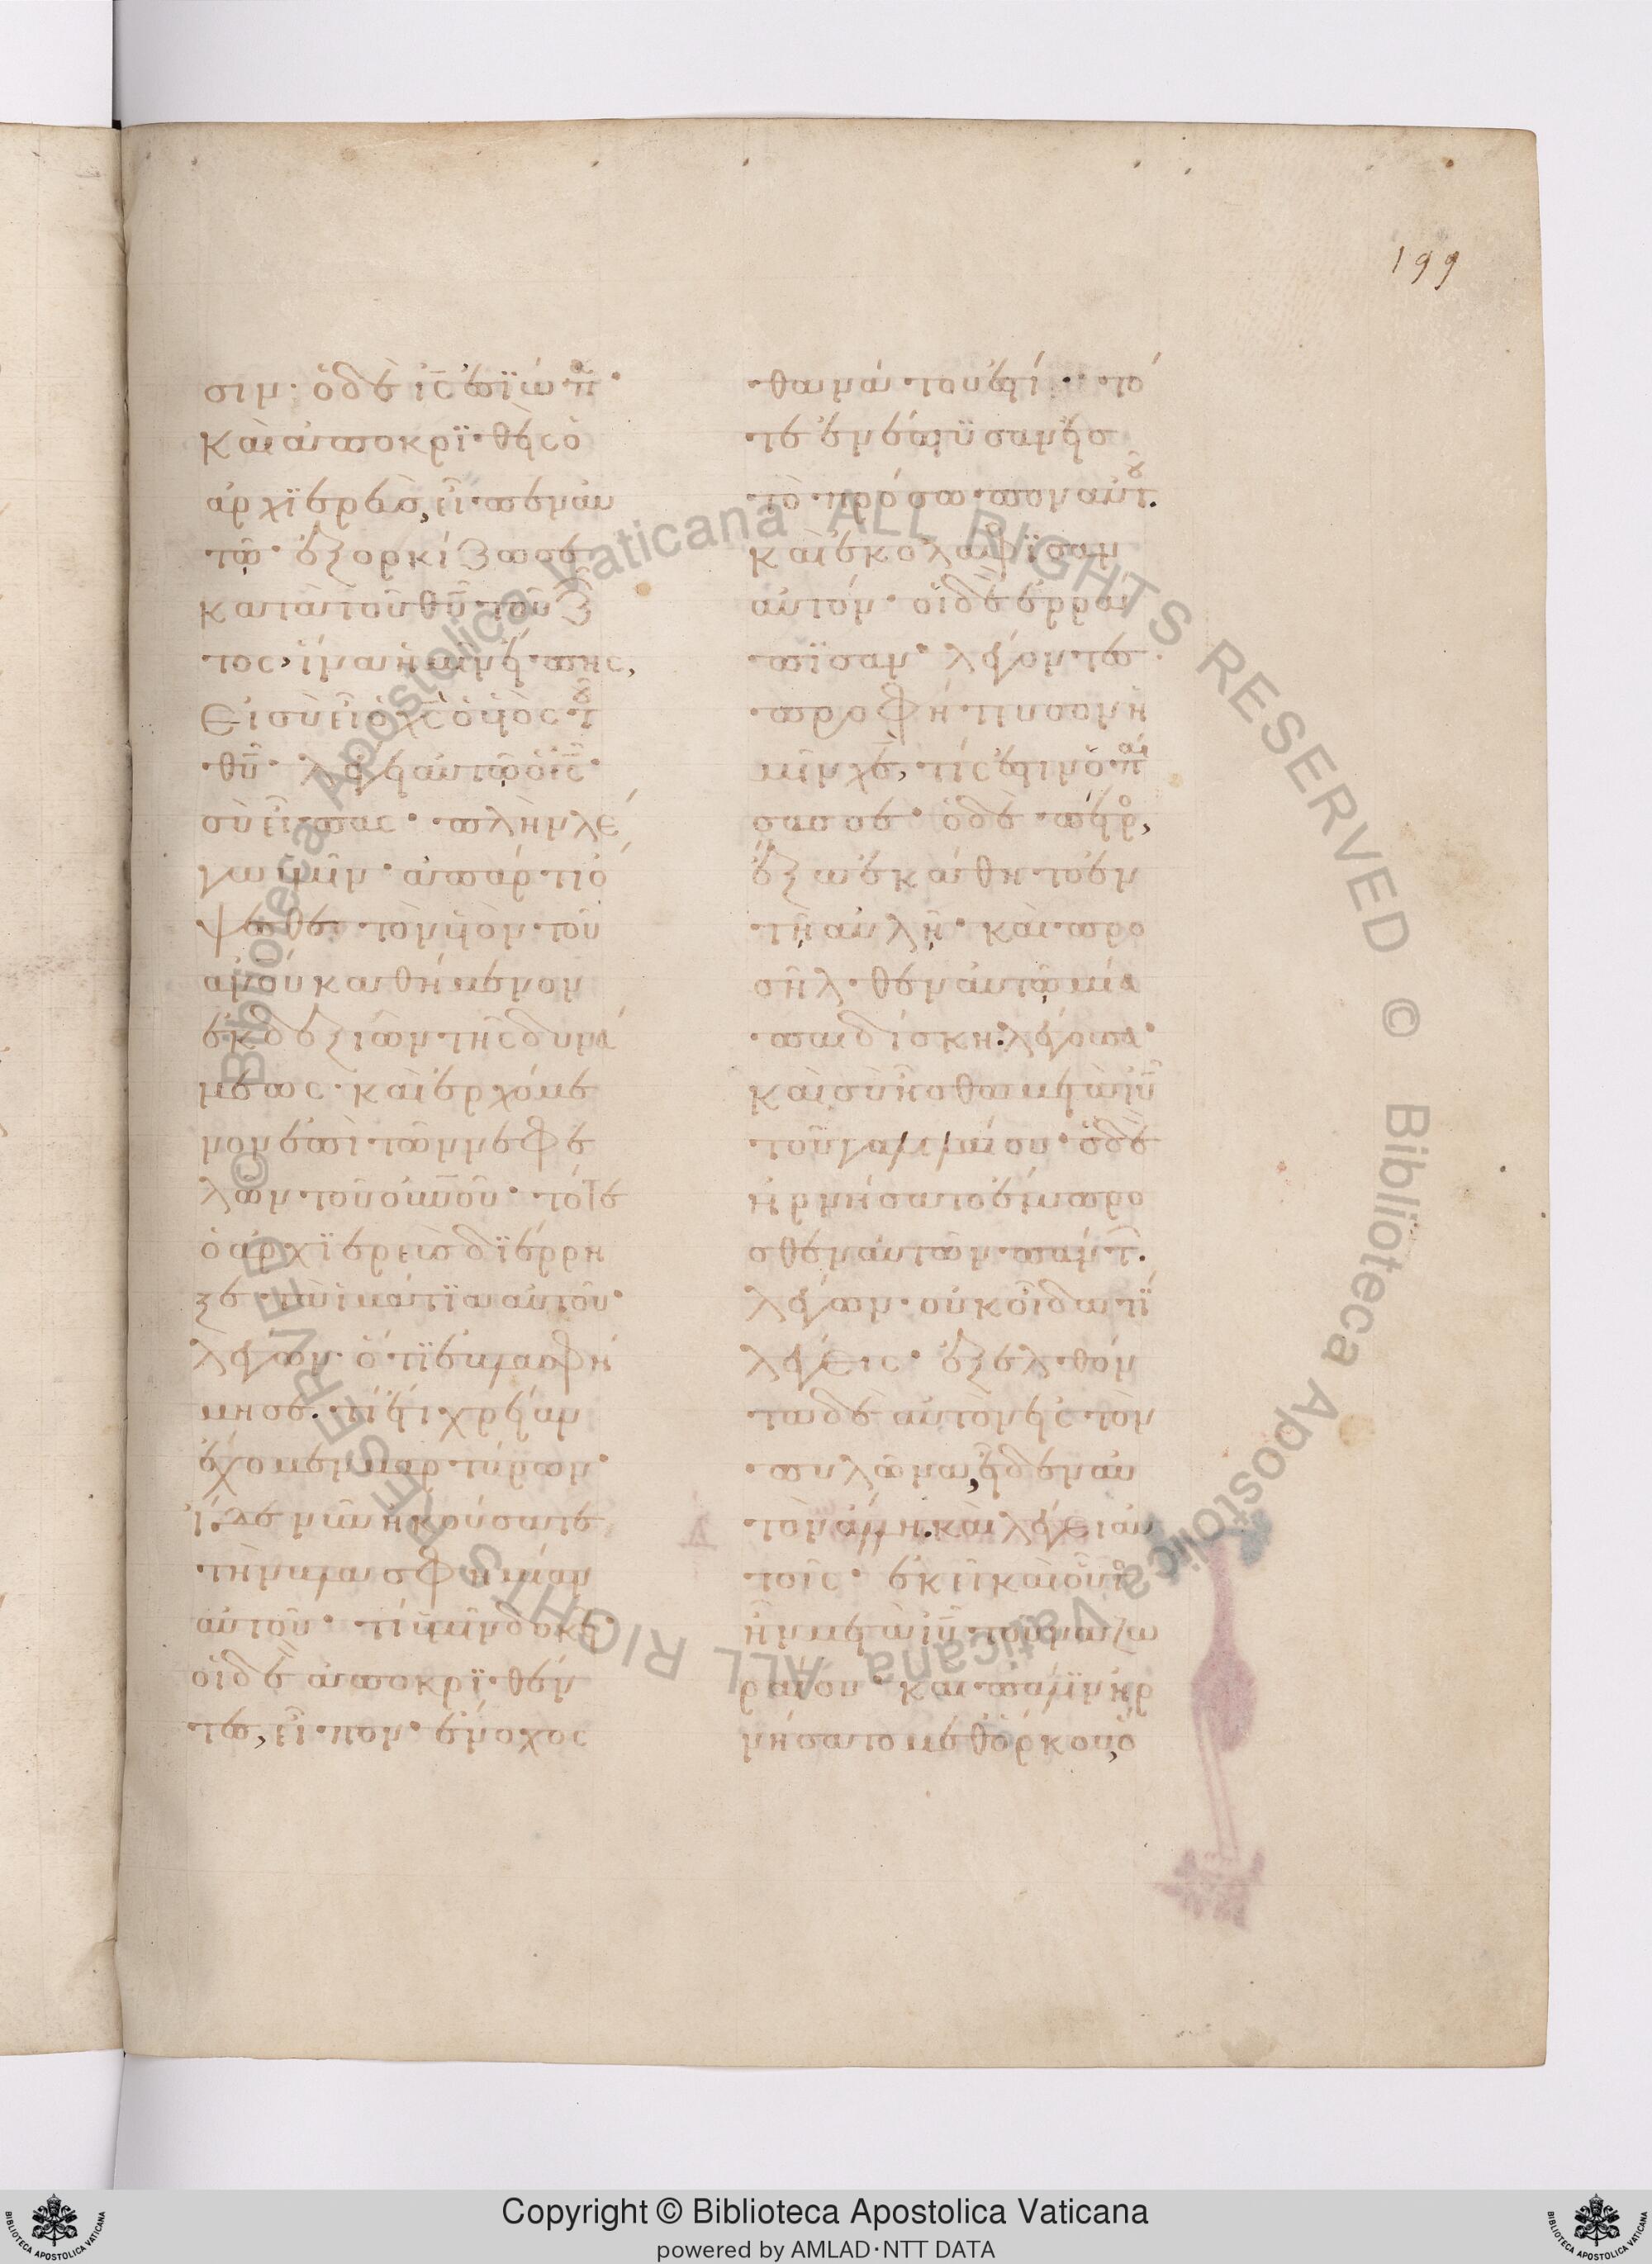 199
σιν· ὁ δὲ ις ἐσϊώπα·
Καὶ ἀποκρϊθεὶς ὁ
ἀρχϊερεὺς, εἶπεν αὐ
τῶ· ἐξορκίζω σε
κατὰ τοῦ θυ τοῦ ζῶ
τος, ἵνα ἡμῖν εἴπης,
Εἰ σὺ εἶ ὁ χς ὁ υἱὸς τοῦ
θυ· λέγει αὐτῶ ὁ ις·
σὺ εἶπας· πλὴν λέ
γω ὑμῖν· ἀπάρτι ὄ
ψεσθε τὸν υἱὸν τοῦ
ανου καθήμενον
ἐκ δεξιῶν τῆς δυνά
μεως· καὶ ἐρχόμε
νον ἐπὶ τῶν νεφε
λῶν τοῦ ουνου· τότε
ὁ ἀρχϊερεὺς δϊέρρη
ξε τὰ ἱμάτϊα αὐτοῦ·
λέγων· ὅτϊ ἐβλασφή
μησε. τί ἔτι χρείαν
ἔχομεν μαρτύρων·
ἴδε νῦν ἠκούσατε
τὴν βλασφημίαν
αὐτοῦ· τί ὑμῖν δοκεῖ·
οἱ δὲ ἀποκρϊθέν
τες, εἶπον· ἔνοχος
θανάτου ἐστί· τό
τε ἐνέπτϋσαν εἰς
τὸ πρόσωπον αὐτοῦ.
Καὶ ἐκολάφϊσαν
αὐτόν· οἱ δὲ ἐρρά
πϊσαν· λέγοντες·
προφήτευσον ἡ
μῖν χε, τίς ἐστιν ὁ παί
σας σε· ὁ δὲ πέτρος,
ἔξω ἐκάθητο ἐν
τῆ αὐλῆ· καὶ προ
σῆλθεν αὐτῶ μία
παιδίσκη· λέγουσα·
Καὶ σὺ ἦσθα μετὰ ιυ
τοῦ γαλιλαίου· ὁ δὲ
ἠρνήσατο ἔμπρο
σθεν αὐτῶν πάντων.
λέγων· οὐκ οἶδα τϊ
λέγεις· ἐξελθόν
τα δὲ αὐτὸν εἰς τὸν
πυλῶνα, εἶδεν αὐ
τὸν ἄλλη. καὶ λέγει αὐ
τοῖς· ἐκεῖ καὶ οὗτος
ἦν μετὰ ιυ τοῦ ναζω
ραίου· καὶ πάλϊν ἠρ
νήσατο μεθ' ὅρκου, ὅ
© Biblioteca Apostolica Vaticana ALL RIGHTS RESERVED © Biblioteca Apostolica Vaticana ALL RIGHTS RESERVED
Copyright © Biblioteca Apostolica Vaticana
powered by AMLAD·NTT DATA
BIBLIOTECA APOSTOLICA VATICANA
BIBLIOTECA APOSTOLICA VATICANA